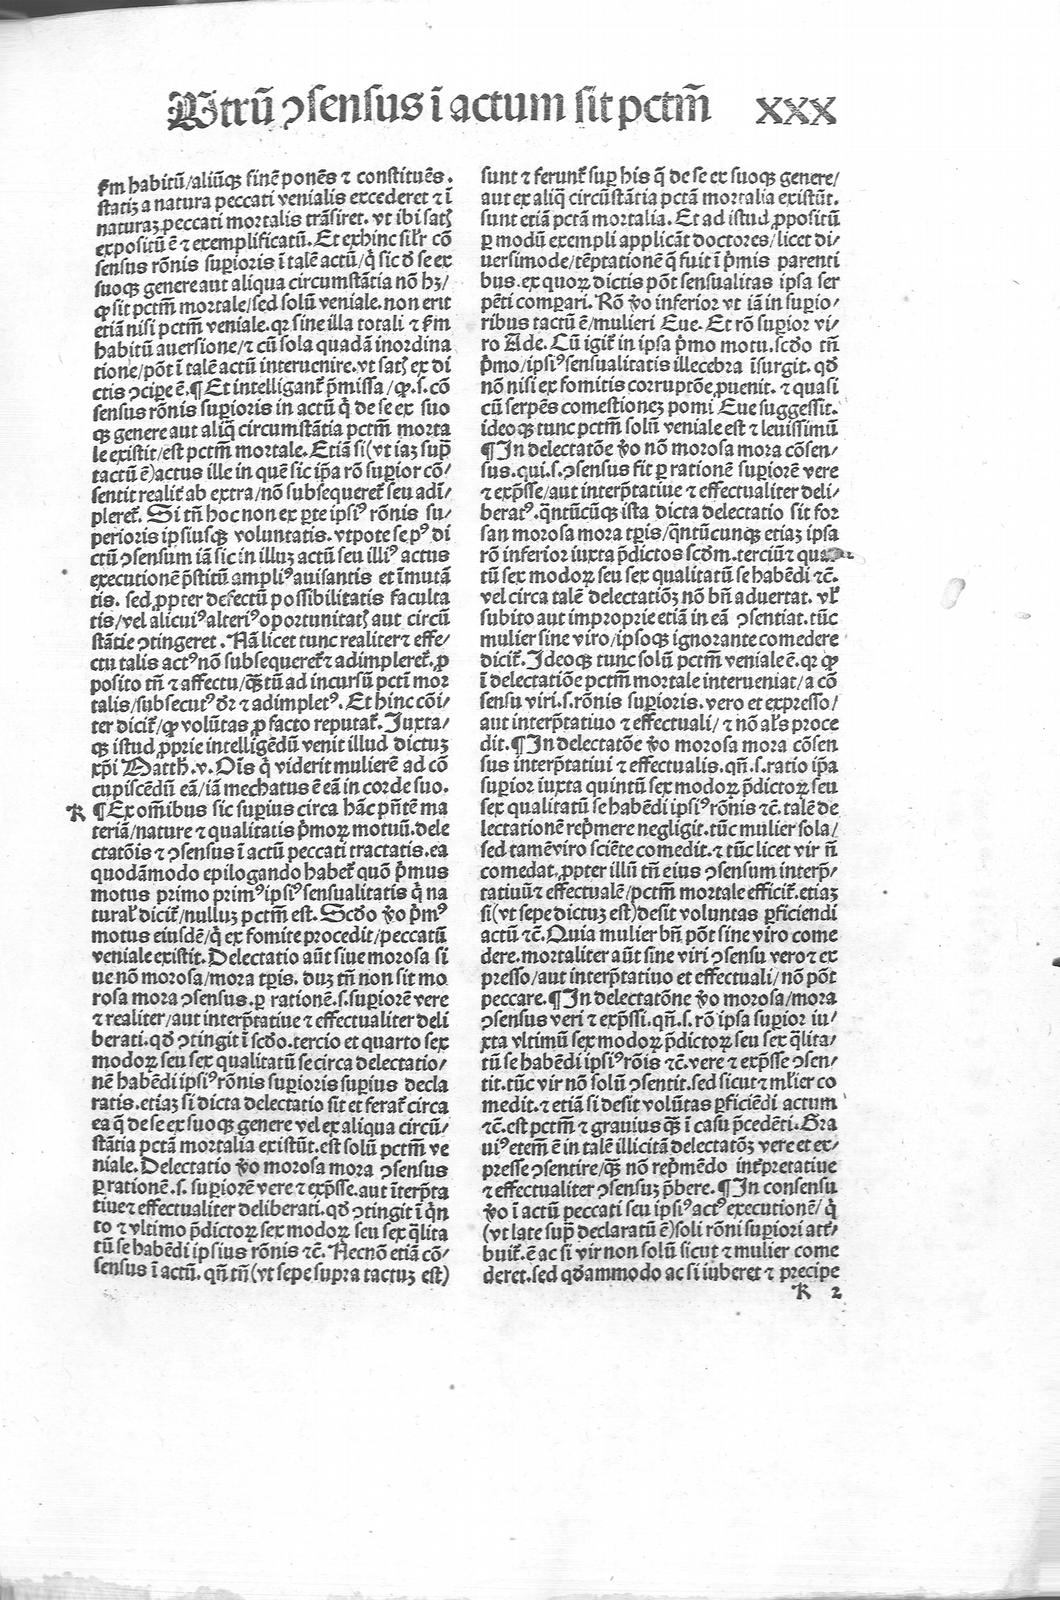 Utrũ ↄsensus ĩ actum sit pctm̃ XXX
ẜm habitũ/aliũqꝫ finẽ ponẽs ⁊ constituẽs.
statiꝫ a natura peccati venialis excederet ⁊ ĩ
naturaꝫ peccati mortalis trãsiret. vt ibi satꝭ
expositũ ẽ ⁊ exemplificatũ. Et exhinc silr̃ cõ
sensus rõnis superioris ĩ talẽ actũ/q̇ sic d̕ se ex
suoqꝫ genere aut aliqua circumstãtia nõ hꝫ/
ꝙ sit pctm̃ mortale/sed solũ veniale. non erit
etiã nisi pctm̃ veniale. qꝛ sine illa totali ⁊ ẜm
habitũ auersione/⁊ cũ sola quadã inordina
tione/põt ĩ talẽ actũ interuenire. vt satꝭ ex di
ctis ↄcipe ẽ. ¶ Et intelligant̃ p̃missa/ꝙ .s. cõ
sensus rõnis suꝑioris in actũ q̇ de se ex suo
qꝫ genere aut aliq̃ circumstãtia pctm̃ morta
le existit/est pctm̃ mortale. Etiã si (vt iaꝫ sup̃
tactũ ẽ) actus ille in quẽ sic ip̃a rõ suꝑior cõ/
sentit realit̃ ab extra/nõ subsequeret̃ seu adĩ/
pleret̃. Si tñ hoc non ex ꝑte ipsiꝰ rõnis su/
perioris ipsiusqꝫ voluntatis. vtpote se pꝰ di
ctũ ↄsensum iã sic in illuꝫ actũ seu illiꝰ actus
executionẽ p̃stitũ ampliꝰ auisantis et ĩmutã
tis. sed ꝓpter defectũ possibilitatis faculta
tis/vel alicuiꝰ alteriꝰ oportunitatꝭ aut circũ
stãtie ↄtingeret. Nã licet tunc realiter ⁊ effe/
ctu talis actꝰ nõ subsequeret̃ ⁊ adimpleret̃. ꝓ
posito tñ ⁊ affectu/qꝫtũ ad incursũ pcti mor
talis/subsecutꝰ dr̃ ⁊ adimpletꝰ. Et hinc cõi/
ter dicit̃/ꝙ volũtas ꝓ facto reputat̃. Juxta/
qꝫ istud ꝓprie intelligẽdũ venit illud dictuꝫ
xp̃i Matth. v. Oĩs q̇ viderit mulierẽ ad cõ
cupiscẽdũ eã/iã mechatus ẽ eã in corde suo.
K ¶ Ex omĩbus sic suꝑius circa hãc pñtẽ ma
teriã/nature ⁊ qualitatis p̃moꝝ motuũ. dele
ctatõis ⁊ ↄsensus ĩ actũ peccati tractatis. ea
quodãmodo epilogando habet̃ quõ p̃mus
motus primo primꝰ ipsiꝰ sensualitatis q̇ na
tural̃ dicit̃/nulluꝫ pctm̃ est. Scd̕o ṽo p̃mꝰ
motus eiusdẽ/q̇ ex fomite procedit/peccatũ
veniale existit. Delectatio aũt siue morosa si
ue nõ morosa/mora tꝑis. duꝫ tñ non sit mo
rosa mora ↄsensus. ꝑ rationẽ .s. suꝑiorẽ vere
⁊ realiter/aut interp̃tatiue ⁊ effectualiter deli
berati. qd̕ ↄtingit ĩ scd̕o. tercio et quarto sex
modoꝝ seu sex qualitatũ se circa delectatio/
nẽ habẽdi ipsiꝰ rõnis suꝑioris suꝑius decla
ratis. etiaꝫ si dicta delectatio sit et ferat̃ circa
ea q̃ de se ex suoqꝫ genere vel ex aliqua circũ/
stãtia pctã mortalia existũt. est solũ pctm̃ ve
niale. Delectatio ṽo morosa mora ↄsensus
ꝑ rationẽ .s. suꝑiorẽ vere ⁊ exp̃sse. aut ĩterp̃ta
tiue ⁊ effectualiter deliberati. qd̕ ↄtingit ĩ q̇n
to ⁊ vltimo p̃dictoꝝ sex modoꝝ seu sex q̃lita
tũ se habẽdi ipsius rõnis ⁊c̃. Necnõ etiã cõ/
sensus ĩ actũ. qñ tñ (vt sepe supra tactuꝫ est)
sunt ⁊ ferunt̃ suꝑ his q̃ de se ex suoqꝫ genere/
aut ex aliq̃ circũstãtia pctã mortalia existũt.
sunt etiã pctã mortalia. Et ad istud ꝓpositũ
ꝑ modũ exempli applicãt doctores/licet di/
uersimode/tẽptationẽ q̃ fuit ĩ p̃mis parenti
bus. ex quoꝝ dictis põt sensualitas ipsa ser
pẽti comꝑari. Rõ ṽo inferior vt iã in suꝑio/
ribus tactũ ẽ/mulieri Eue. Et rõ suꝑior vi/
ro Ade. Cũ igit̃ in ipsa p̃mo motu. scd̕o tñ
p̃mo/ipsiꝰ sensualitatis illecebra ĩsurgit. qd̕
nõ nisi ex fomitis corruptõe ꝓuenit. ⁊ quasi
cũ serpẽs comestioneꝫ pomi Eue suggessit.
ideoqꝫ tunc pctm̃ solũ veniale est ⁊ leuissimũ
¶ In delectatõe ṽo nõ morosa mora cõsen/
sus. qui .s. ↄsensus fit ꝑ rationẽ suꝑiorẽ vere
⁊ exp̃sse/aut interp̃tatiue ⁊ effectualiter deli/
beratꝰ. q̃ntũcũqꝫ ista dicta delectatio sit for
san morosa mora tꝑis/q̃ntũcunqꝫ etiaꝫ ipsa
rõ inferior iuxta p̃dictos scd̕m. terciũ ⁊ qua
tũ sex modoꝝ seu sex qualitatũ se habẽdi ⁊c̃.
vel circa talẽ delectatiõꝫ nõ bñ aduertat. vl̃
subito aut improprie etiã in eã ↄsentiat. tũc
mulier sine viro/ipsoqꝫ ignorante comedere
dicit̃. Ideoqꝫ tunc solũ pctm̃ veniale ẽ. qꝛ ꝙ
ĩ delectatiõe pctm̃ mortale interueniat/a cõ
sensu viri .s. rõnis suꝑioris. vero et expresso/
aut interp̃tatiuo ⁊ effectuali/⁊ nõ al̕s proce
dit. ¶ In delectatõe ṽo morosa mora cõsen
sus interp̃tatiui ⁊ effectualis. qñ .s. ratio ip̃a
suꝑior iuxta quintũ sex modoꝝ p̃dictoꝝ seu
sex qualitatũ se habẽdi ipsiꝰ rõnis ⁊c̃. talẽ de
lectationẽ rep̃mere negligit. tũc mulier sola/
sed tamẽ viro sciẽte comedit. ⁊ tũc licet vir ñ
comedat. ꝓpter illũ tñ eius ↄsensum interp̃/
tatiuũ ⁊ effectualẽ/pctm̃ mortale efficit̃. etiaꝫ
si (vt sepe dictuꝫ est) desit voluntas ꝑficiendi
actũ ⁊c̃. Quia mulier bñ põt sine viro come
dere. mortaliter aũt sine viri ↄsensu vero ⁊ ex
presso/aut interp̃tatiuo et effectuali/nõ põt
peccare. ¶ In delectatõne ṽo morosa/mora
ↄsensus veri ⁊ exp̃ssi. qñ .s. rõ ipsa suꝑior iu/
xta vltimũ sex modoꝝ p̃dictoꝝ seu sex q̃lita/
tũ se habẽdi ipsiꝰ rõis ⁊c̃. vere ⁊ exp̃sse ↄsen/
tit. tũc vir nõ solũ ↄsentit. sed sicut ⁊ ml̕ier co
medit. ⁊ etiã si desit volũtas ꝑficiẽdi actum
⁊c̃. est pctm̃ ⁊ grauius qꝫ ĩ casu p̃cedẽti. Gra
uiꝰ etem̃ ẽ in talẽ illicitã delectatõꝫ vere et ex/
presse ↄsentire/qꝫ nõ rep̃mẽdo int̃pretatiue
⁊ effectualiter ↄsensuꝫ p̃bere. ¶ In consensu
ṽo ĩ actũ peccati seu ipsiꝰ actꝰ executionẽ/q̇
(vt late sup̃ declaratũ ẽ) soli rõni suꝑiori att̃/
buit̃. ẽ ac si vir non solũ sicut ⁊ mulier come
deret. sed qd̕ammodo ac si iuberet ⁊ precipe
K 2